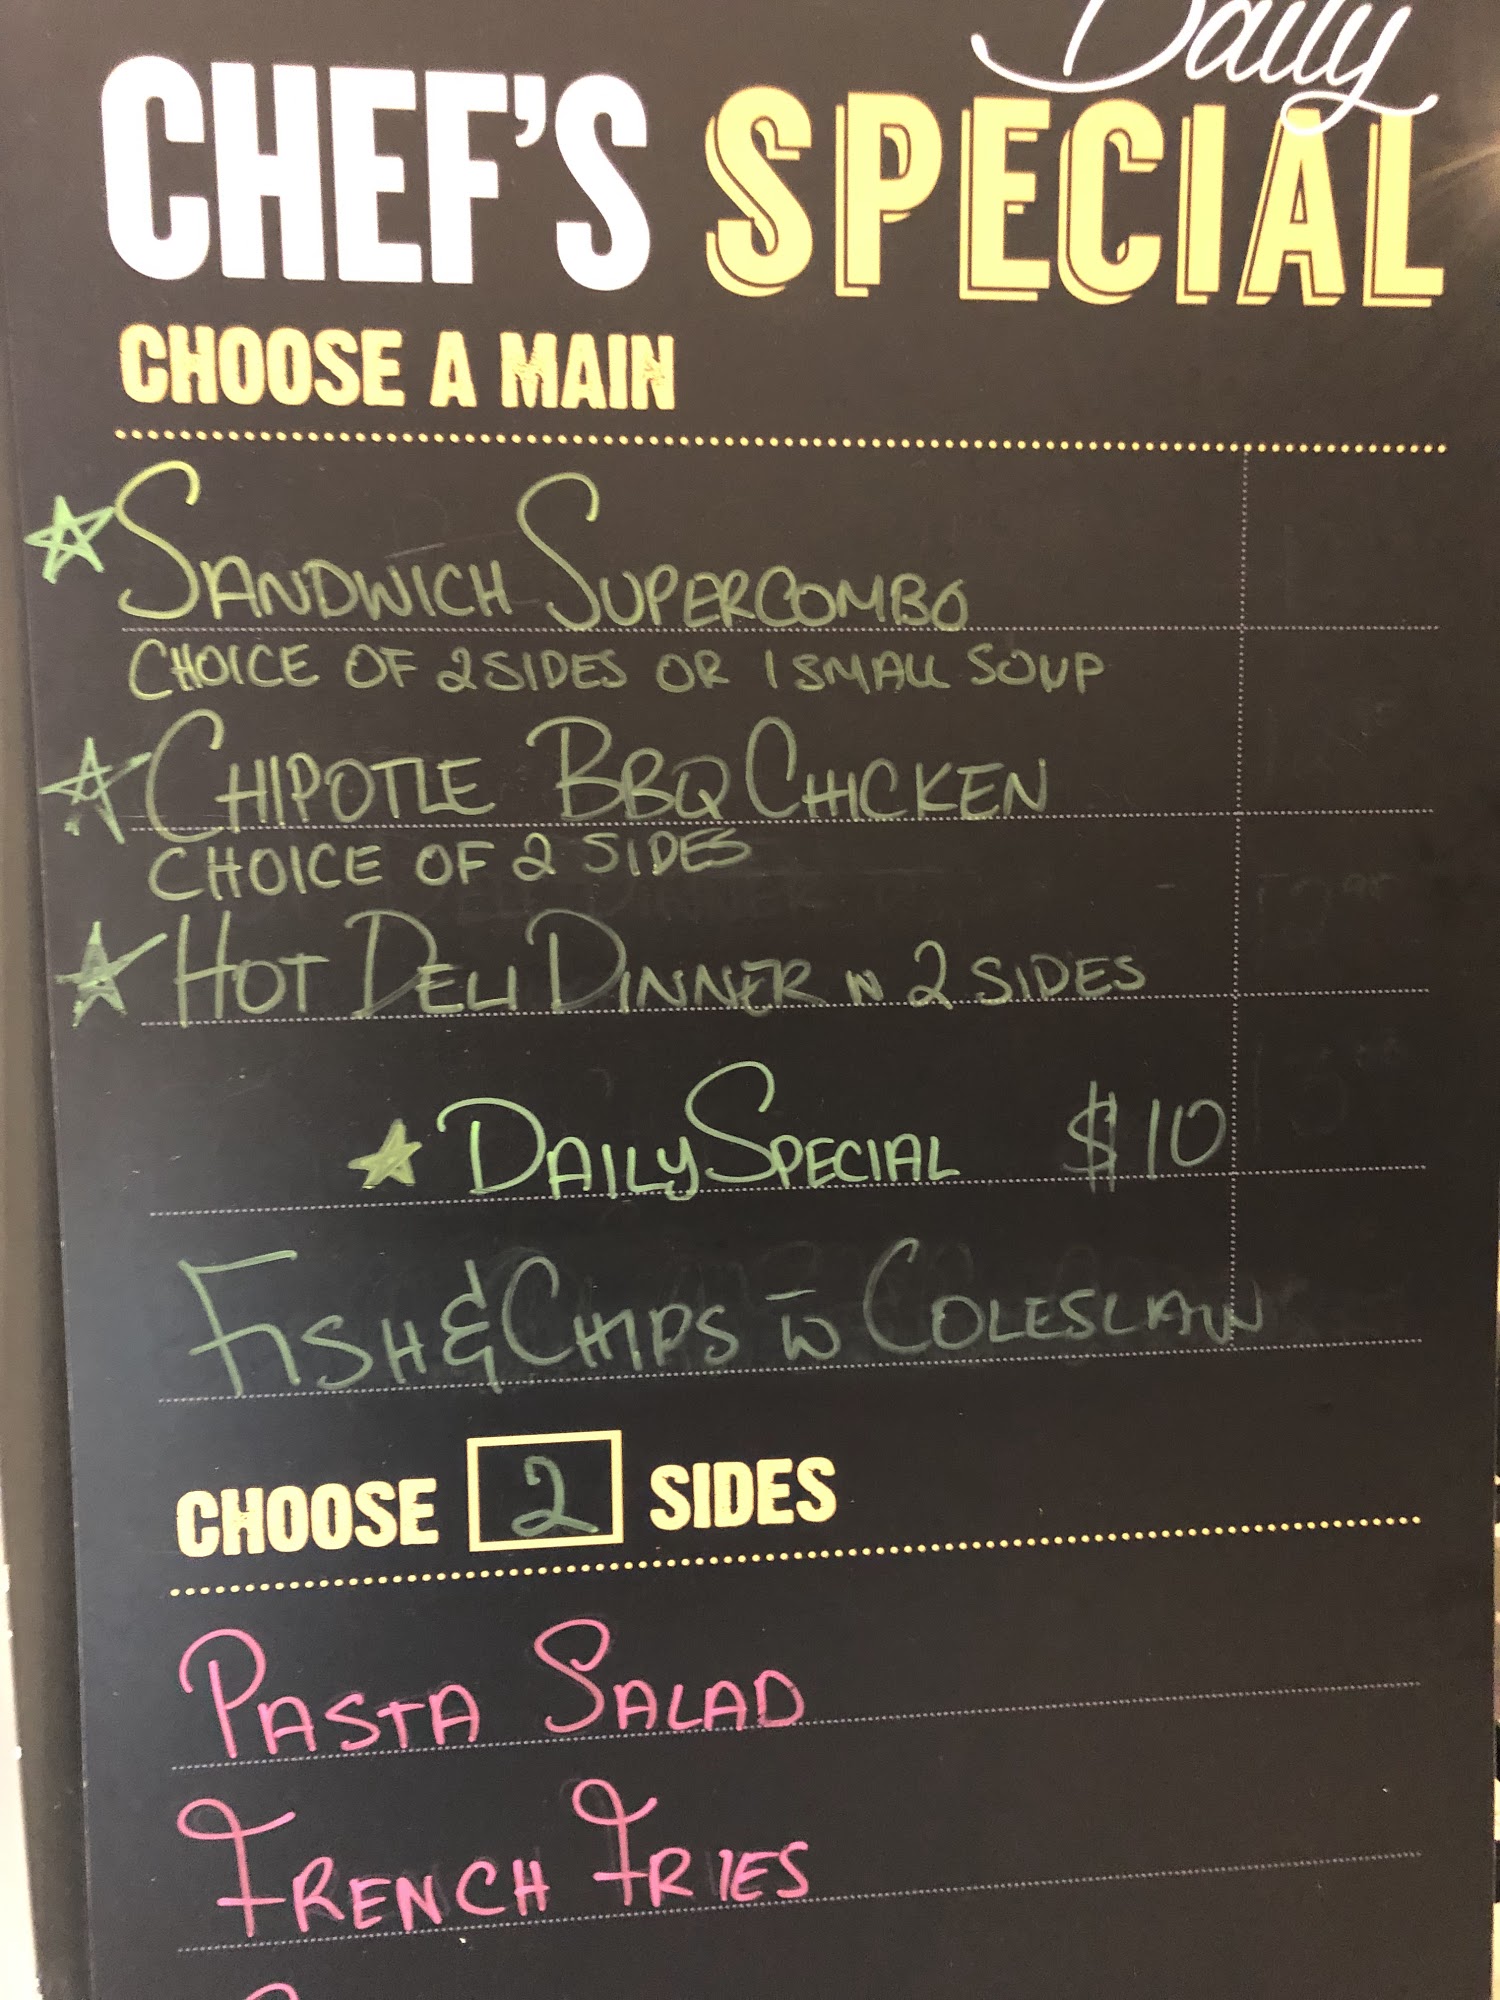 Daily
CHEF'S SPECIAL
CHOOSE A MAIN
SANDWICH SUPERCOMBO
CHOICE OF 2 SIDES OR 1 SMALL SOUP
CHIPOTLE BBQ CHICKEN
CHOICE OF 2 SIDES
HOT DELI DINNER W 2 SIDES
DAILY SPECIAL $10
FISH & CHIPS W COLESLAW
CHOOSE 2 SIDES
PASTA SALAD
FRENCH FRIES